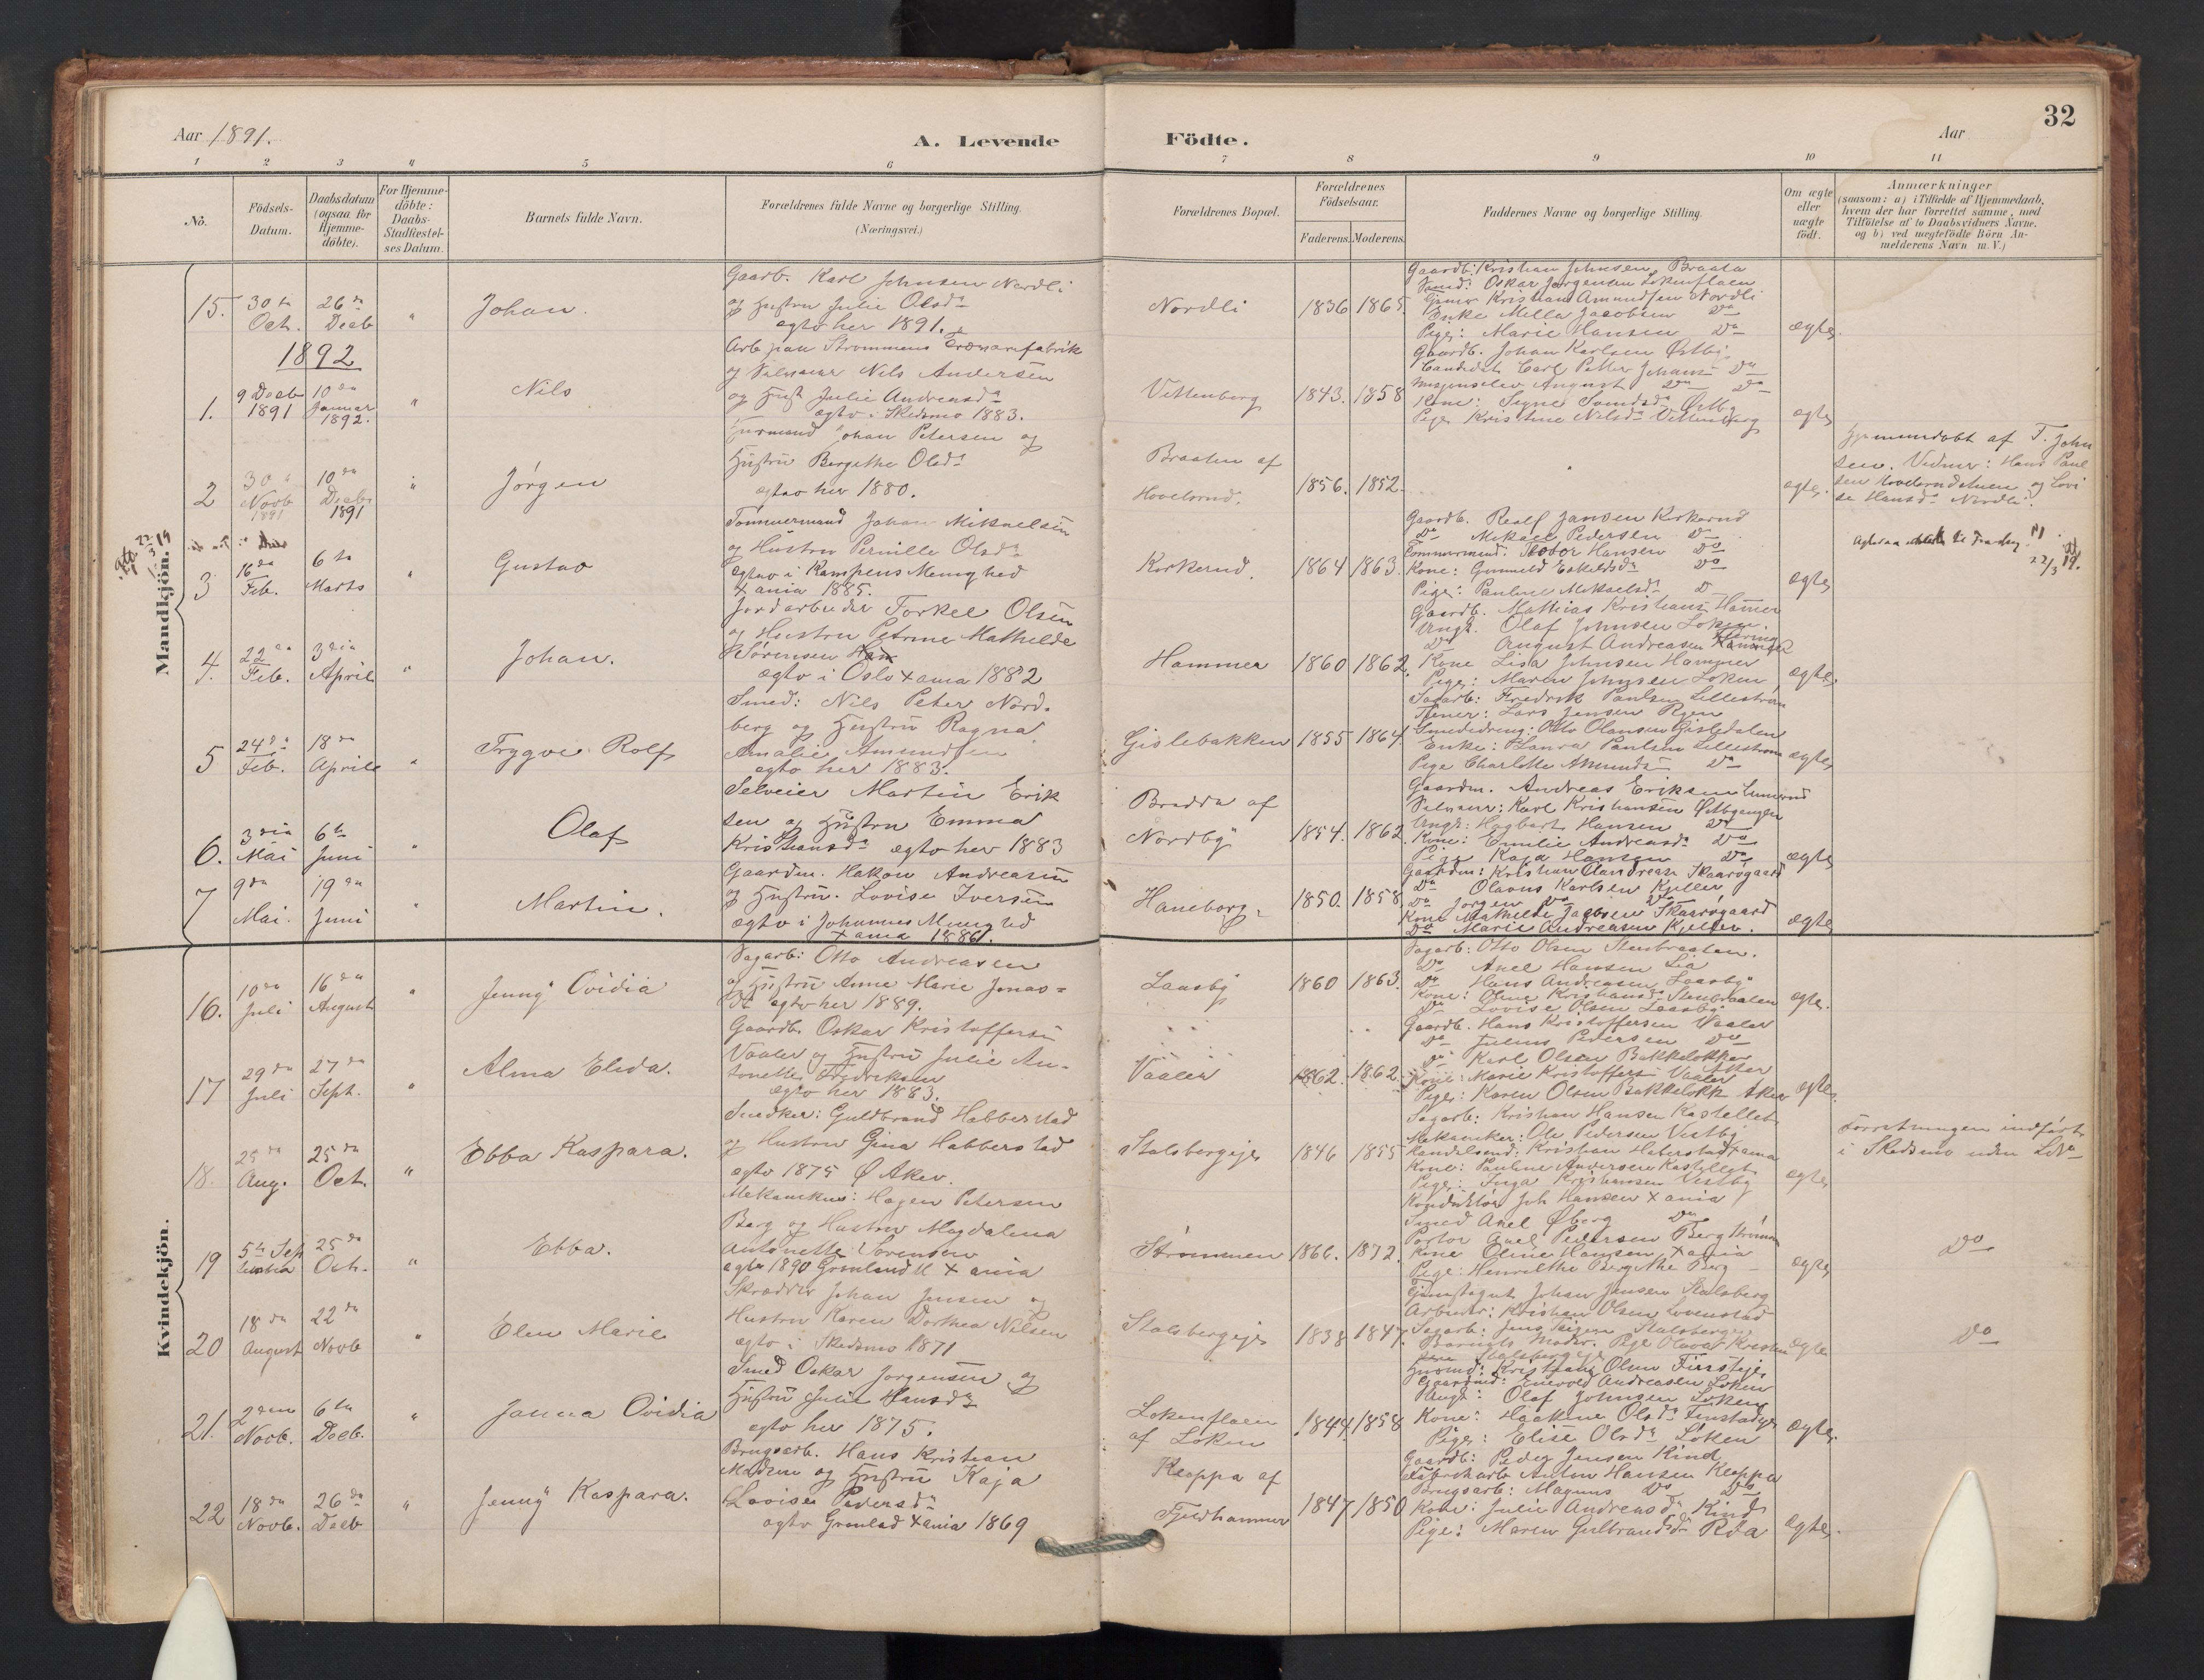 32
Aar 1891.
A. Levende Födte.
Aar
1 2 3 4 5 6 7 8 9 10 11
No.
Födsels-Datum.
Daabsdatum (ogsaa for Hjemme-döbte).
For Hjemme-döbte: Daabs-Stadfæstel-ses Datum.
Barnets fulde Navn.
Forældrenes fulde Navne og borgerlige Stilling. (Næringsvei.)
Forældrenes Bopæl.
Forældrenes Födselsaar.
Faderens. Moderens.
Faddernes Navne og borgerlige Stilling.
Om ægte eller uægte födt.
Anmærkninger
(saasom: a) i Tilfælde af Hjemmedaab, hvem der har forrettet samme, med Tilföielse af to Daabsvidners Navne. og b) ved uægtefödte Börn An-melderens Navn m. V.)
Mandkjön.
15. 30te Oct. 26de Decb " Johan.
Gaarb. Karl Johnsen Nordli
og Hustru Julie Olsdr
egtv her 1891.
Nordli 1836 1865.
Gaardb. Kristian Johnsen Braata
Smed: Oskar Jørgensen Lokenflaen
Kristian Amundsen Nordli
Enke Mella Jacobsen Do
Pige: Marie Hansen Do
ægte.
1892
1. 9 Decb 1891 10de Januar 1892. " Nils
Arb paa Strommens Trævarefabrik
og Selveier Nils Andersen
og Hust Julie Andreasdr
egtv. Skedsmo 1883.
Vittenberg 1843. 1858
Gaardb. Johan Karlsen Østby
Candidat Carl Petter Johans Do
August Do Do
Kone: Signe Østby
Pige Kristine Nilsdr Vittenberg
ægte
2 30 Novb 1891 10de Decbr 1891 " Jørgen
Johan Petersen og
Hustru Bergithe Olsdr
egtv her 1880.
Braaten af
1856. 1852.
"
ægte.
Hjemmedøbt af T. John
sen. Vidner: Hans Paul
sen og Lovi
se Hansdr Nordli.
3 16de Feb. 6te Marts " Gustav
Tømmermand Johan Mikaelsen
og Hustru Pernille Olsdr
Egtev i Kampens Menighed
Xania 1885.
Kirkerud. 1864 1863.
Gaardb. Realf Jansen Kirkerud
Do Mikael Pedersen Do
Tømmermand: Teodor Hansen Do
Kone: Gunnild Eskildsdr Do
Pige: Pauline Mikaelsdr D
ægte
22/3 19.
4. 22de Feb. 3die April " Johan.
Jordarbeider Torkel Olsen
og Hustru Petrine Mathilde
Sørensen
egtv i Oslo Xania 1882
Hammer 1860 1862.
Gaardb. Mathias Kristians Hamer
Ungk. Olaf Johnsen Loken.
Do August Andreasen
Kone Lisa Johnsen Hammer
Pige: Maren Johnsen Loken
ægte.
5 24de Feb. 18de Aprile " Trygve Rolf
Smed: Nils Peter Nord-
berg og Hustru Ragna
Amalie Amundsen
egtv her 1883.
Gislebakken 1855 1864.
Sagarb: Fredrik Paulsen Lillestrøm
Tjener: Lars Jensen Ryen
Smededreng: Otto Olausen Gisledalen
Enke: Laura Paulsen Lillestrøm
Pige Charlotte Amunds Do
ægte
6. 3die Mai 6te Juni " Olaf
Selveier Martin Erik
sen og Hustru Emma
Kristiansdr egtv her 1883
Braata af
Nordby 1854. 1862.
Gaardm. Andreas Eriksen
Selveier: Karl Kristiansen
Ungk: Hagbart Hansen Do
Kone: Emilie Andreasdr Do
Pige Kaja Hansen Do
ægte
7 9de Mai. 19de Juni " Martin.
Gaardm. Hakon Andreasen
og Hustru. Lovise Iversen
egtv i Johannes Menighed
Xania 1886.
Haneborg. 1850. 1858.
Gaardm: Kristian Andreas Skaarsgaard
Do Olavus Karlsen Kjeller
Do Jørgen Do Do
Kone Mathilde Jacobsen Skaarsgaard
Do Marie Andreasen Kjeller.
ægte
Kvindekjön.
16. 10de Juli 16de August " Jenny Ovidia
Sagarb: Otto Andreasen
og Hustru Anne Marie Jonas=
Dr egtv her 1889.
Laasby 1860 1863.
Sagarb: Otto Olsen Stenbraaten.
Do Axel Hansen Lia
Do Hans Andreasen Laasby
Kone: Oline Kristiansdr Stenbraaten
Do Lovise Olsen Laasby
ægte.
17 29de Juli 27de Sept. " Alma Elida.
Gaardb. Oskar Kristoffersen
Vaaler og Hustru Julie An-
tonette Fredriksen
egtv her 1883.
Vaaler 1862. 1862.
Gaardb. Hans Kristoffersen Vaaler
Do Julius Pedersen Do
Do Karl Olsen Bakkelokker Aker
Kone: Marie Kristoffers Vaaler
Pige: Karen Olsen Bakkelokk Aker
ægte.
18. 25de Aug. 25de Oct. " Ebba Kaspara.
Snedker: Guldbrand Habberstad
og Hustru Gina Habberstad
egtv 1875 Ø Aker.
Stalsbergeje 1846 1855
Sagarb: Kristian Hansen Kastellet
Mekaniker: Ole Pedersen Vestby
Handelsmd: Kristian Haberstad Xania
Kone: Pauline Andersen Kastellet
Pige: Inga Kristiansen Vestby
ægte
Forretningen indført
i Skedsmo uden
19 5te Sep 25de Oct. " Ebba.
Mekanikus: Hagen Petersen
Berg og Hustru Magdalena
Antonette Sørensen
egtv 1890 Grønland Xania
Strømmen 1866. 1872.
Konduktør Joh Hansen Xania
Smed Axel Øberg Do
Portør Axel Pedersen Berg Strømm
Kone Oline Hansen Xania
Pige: Henriette Bergithe Berg
ægte
Do
20 18de August 22de Novb " Elen Marie
Skrædder Johan Jensen og
Hustru Karen Dorthea Nilsen
egtv i Skedsmo 1871
Stalsbergeje 1838 1847.
Johan Jansen Stalsberg
Arbeider: Kristian Olsen Lovenstad
Sagarb: Jens Stalsbergeje
Barnets Moder. Pige Olava Kristen
sen Stalsbergeje
ægte
Do
21. 2den Novb. 6te Decb. " Janna Ovidia
Smed Oskar Jørgensen og
Hustru Julie Hansdr
egtv her 1875.
Lokenflaen
af Loken 1844. 1858
Husmd: Kristian Olsen
Gaardmd: Enevold Andreasen Loken
Ungk: Olaf Johnsen Loken
Kone: Haakine Olsdr
Pige: Elise Olsdr Loken
ægte.
22 18de Novb. 26de Decb " Jenny Kaspara.
Brugsarb. Hans Kristian
Madsen og Hustru Kaja
Lovise Pedersdr
egtv Grønland Xania 1869
Kloppa af
Fjeldhammer 1847 1850
Gaardb: Peder Jensen Rind
Fabrikarb Anton Hansen Kloppa
Brugsarb: Magnus Do Do
Kone: Julie Andreasdr Rind
Pige: Maren Gulbrandsdr Röa
ægte